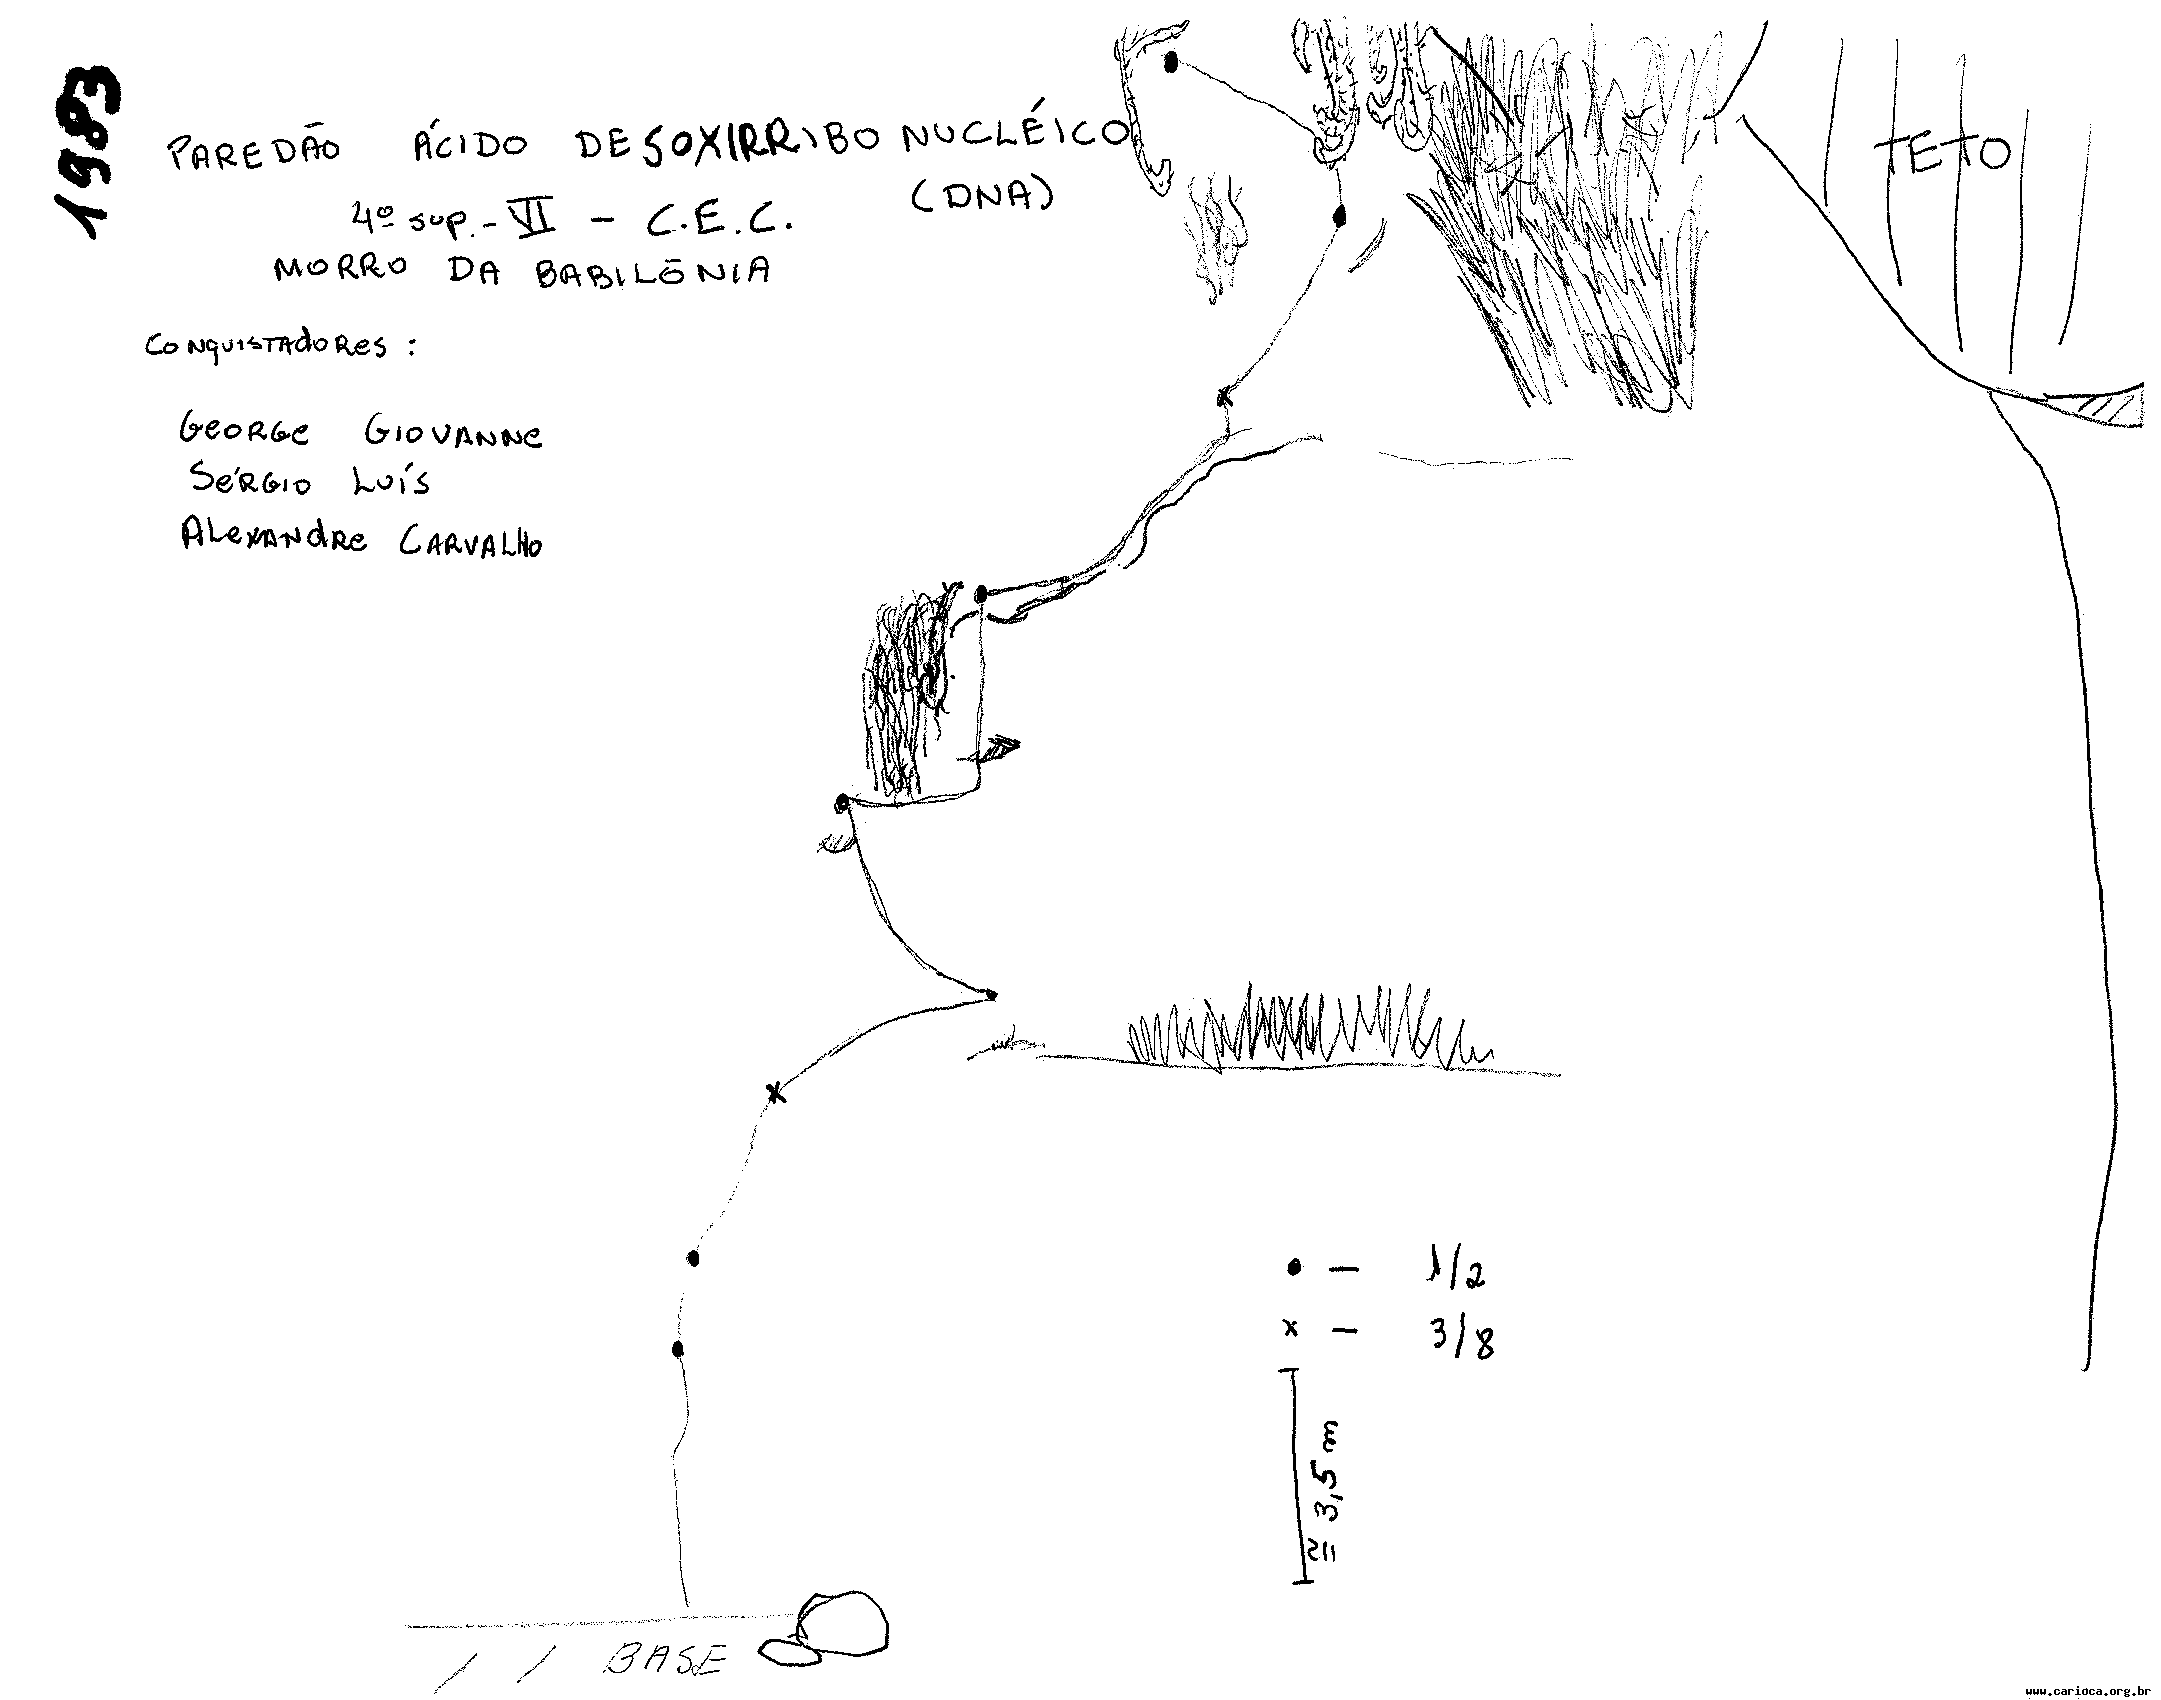 1983
PAREDÃO ÁCIDO DESOXIRRIBONUCLÉICO
(DNA)
4º sup. - VI - C.E.C.
MORRO DA BABILÔNIA
CONQUISTADORES :
GEORGE GIOVANNE
SÉRGIO LUÍS
ALEXANDRE CARVALHO
TETO
● - 1/2
x - 3/8
≅ 3,5 m
BASE
www.carioca.org.br